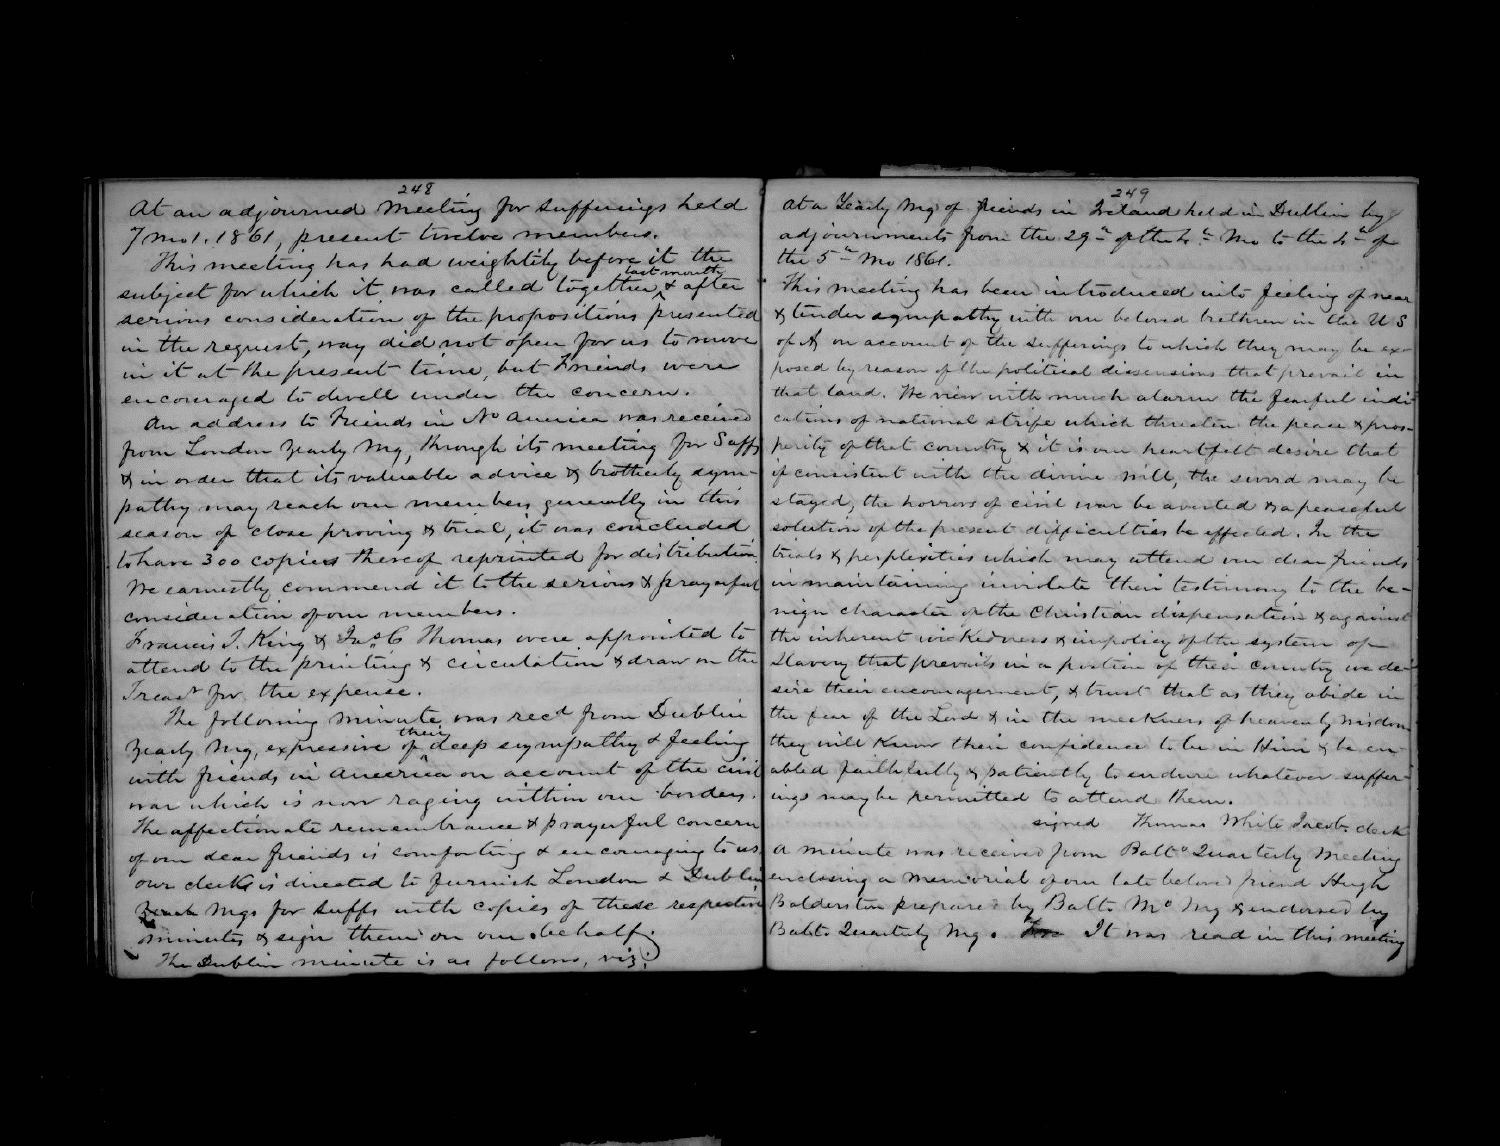 248
At an adjourned Meeting for Sufferings held
7 mo 1. 1861, present twelve members.
This meeting has had weightily before it the
subject for which it was called together last month & after
serious consideration of the propositions presented
in the request, way did not open for us to move
in it at the present time, but Friends were
encouraged to dwell under the concern.
An address to Friends in No America was received
from London Yearly Mg, through its meeting for Suffs
& in order that its valuable advice & brotherly sym-
pathy may reach our members generally in this
season of close proving & trial, it was concluded
to have 300 copies thereof reprinted for distribution
We earnestly commend it to the serious & prayerful
consideration of our members.
Francis T. King & Jas C Thomas were appointed to
attend to the printing & circulation & draw on the
Treasr for the expense.
The following minute was recd from Dublin
Yearly Mg, expressive of their deep sympathy & feeling
with friends in America on account of the civil
war which is now raging within our borders.
The affectionate remembrance & prayerful concern
of our dear friends is comforting & encouraging to us
our clerk is directed to furnish London & Dublin
Mgs for Suffs with copies of these respective
minutes & sign them on our behalf.
The Dublin minute is as follows, viz;
249
At a Yearly Mg of friends in Ireland held in Dublin by
adjournments from the 29th of the 4th Mo to the 4th of
the 5th Mo 1861.
This meeting has been introduced into feeling of near
& tender sympathy with our beloved brethren in the U S
of A on account of the sufferings to which they may be ex-
posed by reason of the political dissensions that prevail in
that land. We view with much alarm the fearful indi-
cations of national strife which threaten the peace & pros-
perity of that country & it is our heartfelt desire that
if consistent with the divine Will, the sword may be
stayed, the horrors of civil war be averted & a peaceful
solution of the present difficulties be effected. In the
trials & perplexities which may attend our dear friends
in maintaining inviolate their testimony to the be-
nign character of the Christian dispensation & against
the inherent wickedness & impolicy of the system of
Slavery that prevails in a portion of their country we de-
sire their encouragement, & trust that as they abide in
the fear of the Lord & in the meekness of heavenly wisdom
they will know their confidence to be in Him & be en-
abled faithfully & patiently to endure whatever suffer-
ings may be permitted to attend them.
signed Thomas White Jacob clerk
A minute was received from Balto Quarterly Meeting
enclosing a memorial of our late beloved friend Hugh
Balderston prepared by Balto Mo Mg & endorsed by
Balto Quarterly Mg. It was read in this meeting